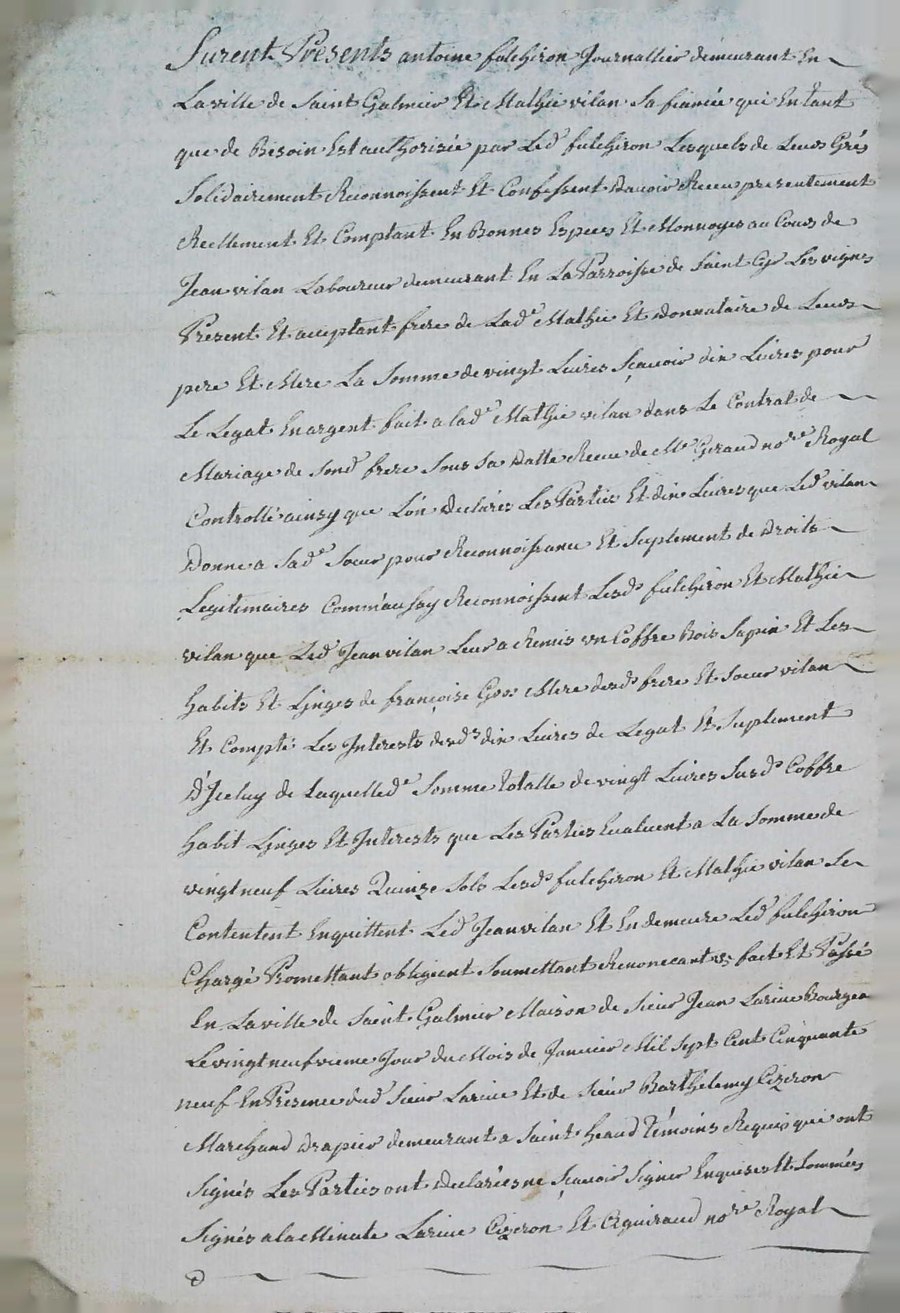 Furent Présents antoine fulchiron Journallier demeurant En
La ville de Saint Galmier Et Mathie vilan Sa fiancée qui En tant
que de Besoin Est authorisée par Led.^t fulchiron Lesquels de Leurs Grés
Solidairement Reconnoissent Et Confessent davoir Receu presentement
Reellement Et Comptant En Bonnes Especes Et Monnoyes au Cours de
Jean vilan Laboureur demeurant En La Parroisse de Saint Cyr Les vignes
Présent Et acceptant frere de Lad.^e Mathie Et donnataire de Leurs
pere Et Mere La Somme de vingt Livres Sçavoir dix Livres pour
Le Legat En argent fait a lad.^e Mathie vilan dans Le Contrat de
Mariage de Sond.^t frere Sous Sa Datte Receu de M.^e Giraud no.^re Royal
Controllé ainsy que L'on declarés Les Parties Et dix Livres que Led.^t vilan
Donne a Sad.^e Soeur pour Reconnoissance Et Suplement de Droits
Legitimaires Comm'aussy Reconnoissent Lesd.^s fulchiron Et Mathie
vilan que Led.^t Jean vilan Leur a Remis un Coffre Bois Sapin Et Les
habits Et Linges de françoise Mere desd.^s frere Et Soeur vilan
Et Compté Les Interests desd.^s dix Livres de Legat Et Suplement
D'Iceluy de Laquelled.^e Somme totalle de vingt Livres Susd.^s Coffre
habit Linges Et Interests que Les Parties Evaluent a La Somme de
vingt neuf Livres Quinze Sols Lesd.^s fulchiron Et Mathie vilan Se
Contentent Enquittent Led.^t Jean vilan Et En demeure Led.^t fulchiron
Chargé Promettant obligeant Soumettant Renoncant &c fait Et Passé
En La ville de Saint Galmier Maison de Sieur Jean Larive Bourgeo
Le vingt neufvieme Jour du Mois de Janvier Mil Sept Cent Cinquante
neuf En Presence dud.^t Sieur Larive Et de Sieur Barthelemy Cizeron
Marchand Drapier demeurant a Saint heand Témoins Requis qui ont
Signés Les Parties ont declarés ne Sçavoir Signer Enquises Et Sommées
Signés a la Minute Larive Cizeron Et no.^re Royal